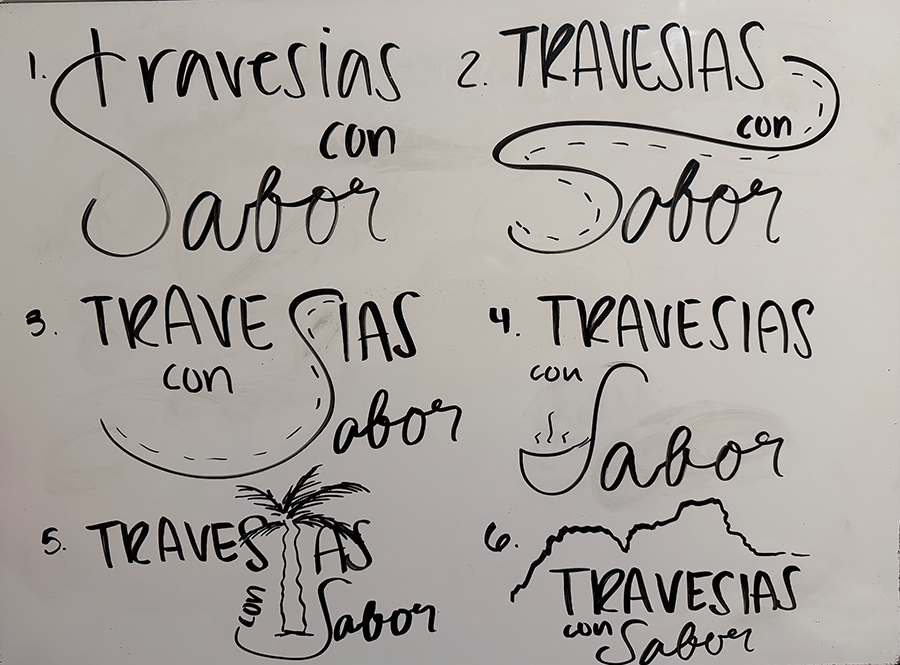 1. Travesias
con
Sabor
2. TRAVESIAS
con
Sabor
3. TRAVESIAS
con
Sabor
4. TRAVESIAS
con
Sabor
5. TRAVESIAS
con
Sabor
6. TRAVESIAS
con Sabor